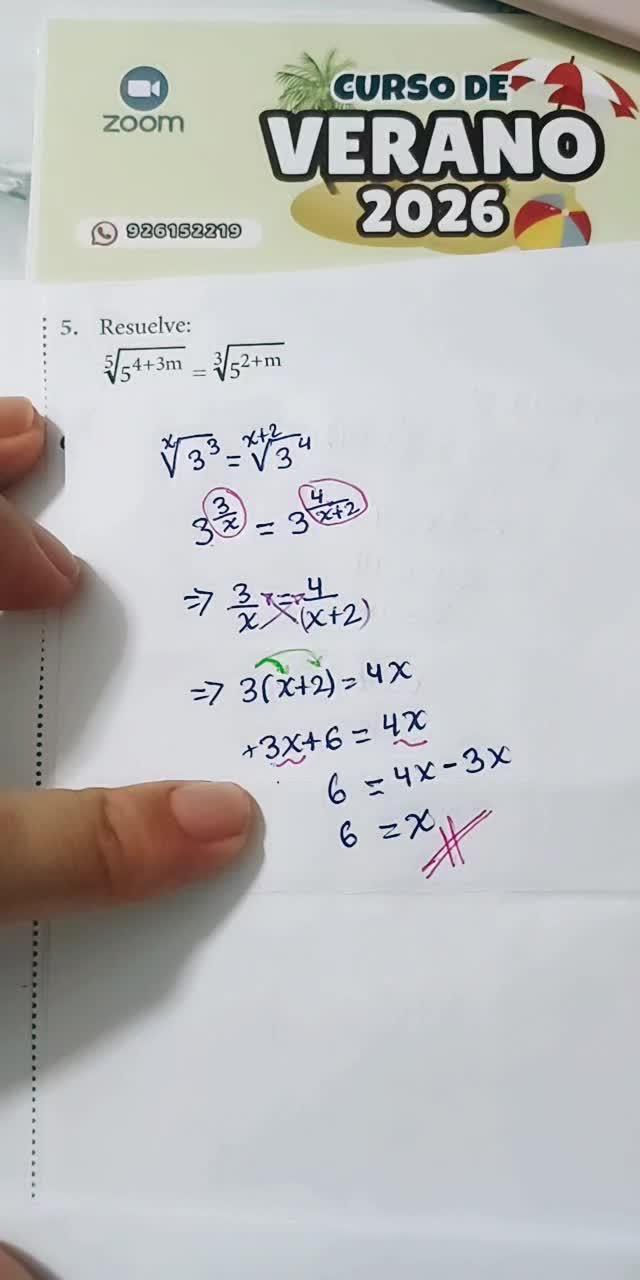 zoom
CURSO DE
VERANO
2026
926152219
5. Resuelve:
⁵√5^(4+3m) = ³√5^(2+m)
ˣ√3³ = ˣ⁺²√3⁴
3^(3/x) = 3^(4/(x+2))
⇒ 3/x = 4/(x+2)
⇒ 3(x+2) = 4x
+3x+6 = 4x
6 = 4x-3x
6 = x